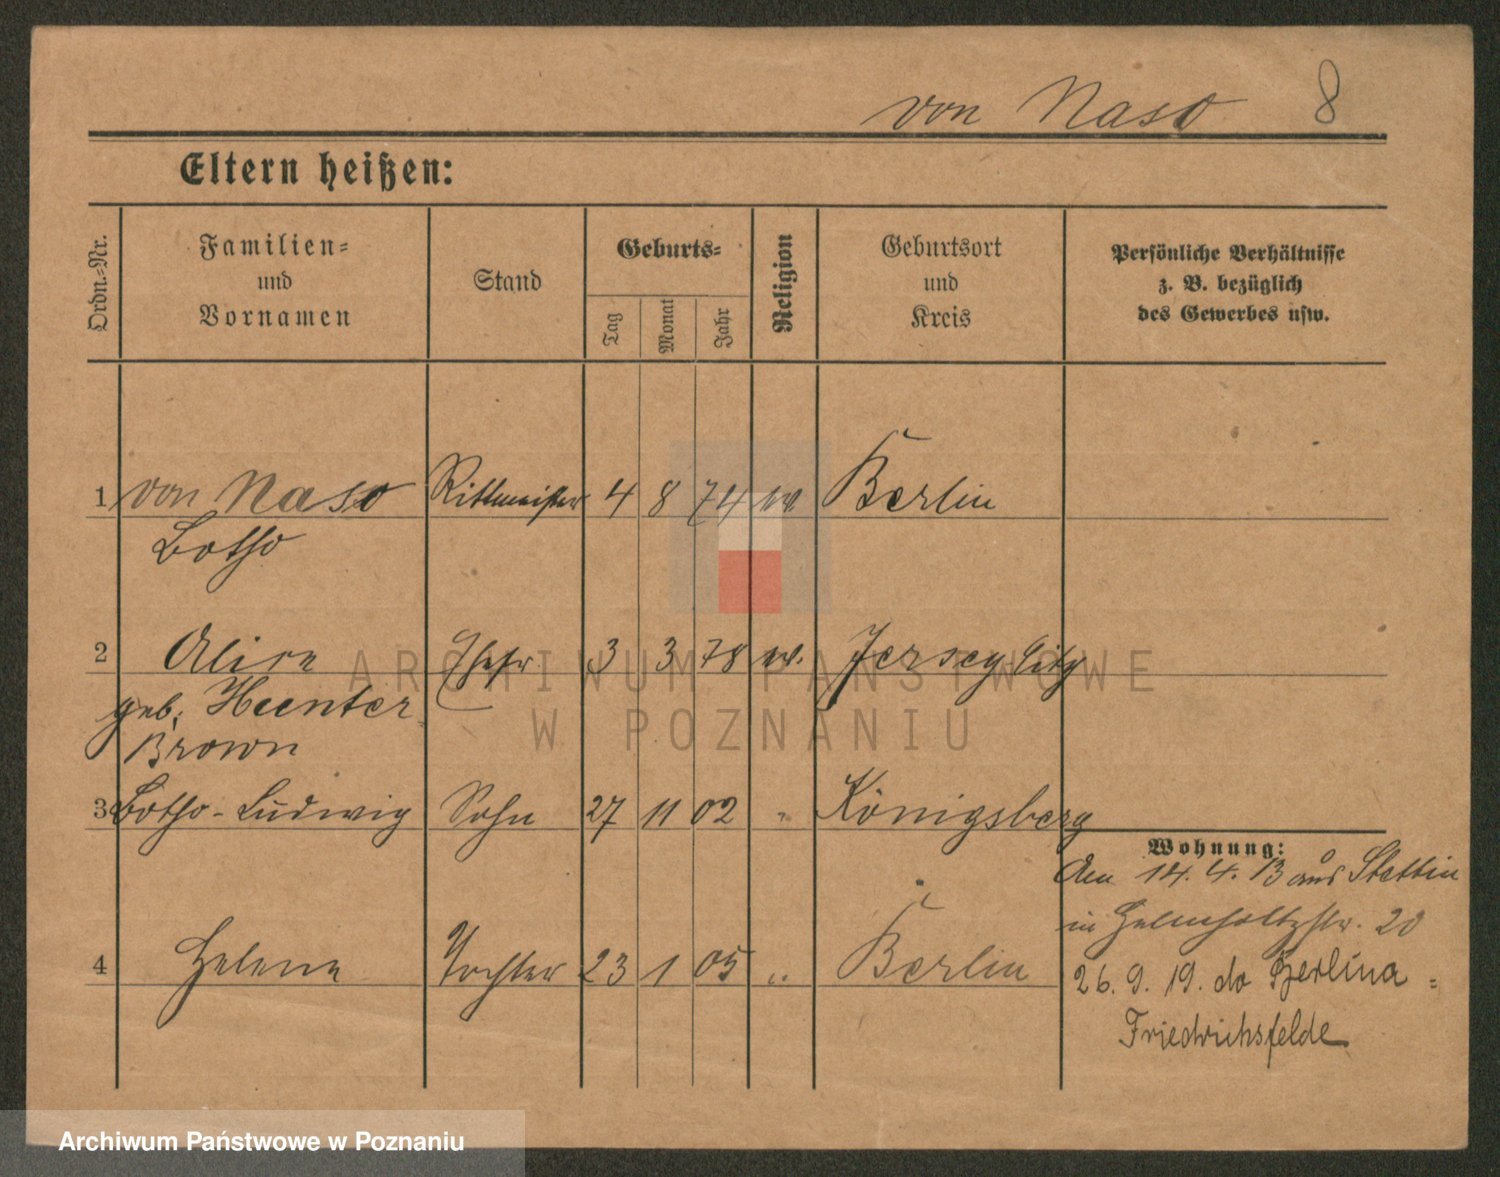 von Naso 8
Eltern heißen:
Ordn.-Nr.
Familien-
und
Vornamen
Stand
Geburts-
Tag
Monat
Jahr
Religion
Geburtsort
und
Kreis
Persönliche Verhältnisse
z. B. bezüglich
des Gewerbes usw.
1 von Naso Rittmeister 4 8 74 ev Berlin
Botho
2 Alice Ehefr. 3 3 78 ev. Jersey City
geb. Hunter
Brown
3 Botho-Ludwig Sohn 27 11 02 " Königsberg
Wohnung:
Am 14. 4. 13 aus Stettin
in Helmholtzstr. 20
4 Helene Tochter 23 1 05 " Berlin
26. 9. 19. do Berlina =
Friedrichsfelde
ARCHIWUM PAŃSTWOWE
W POZNANIU
Archiwum Państwowe w Poznaniu